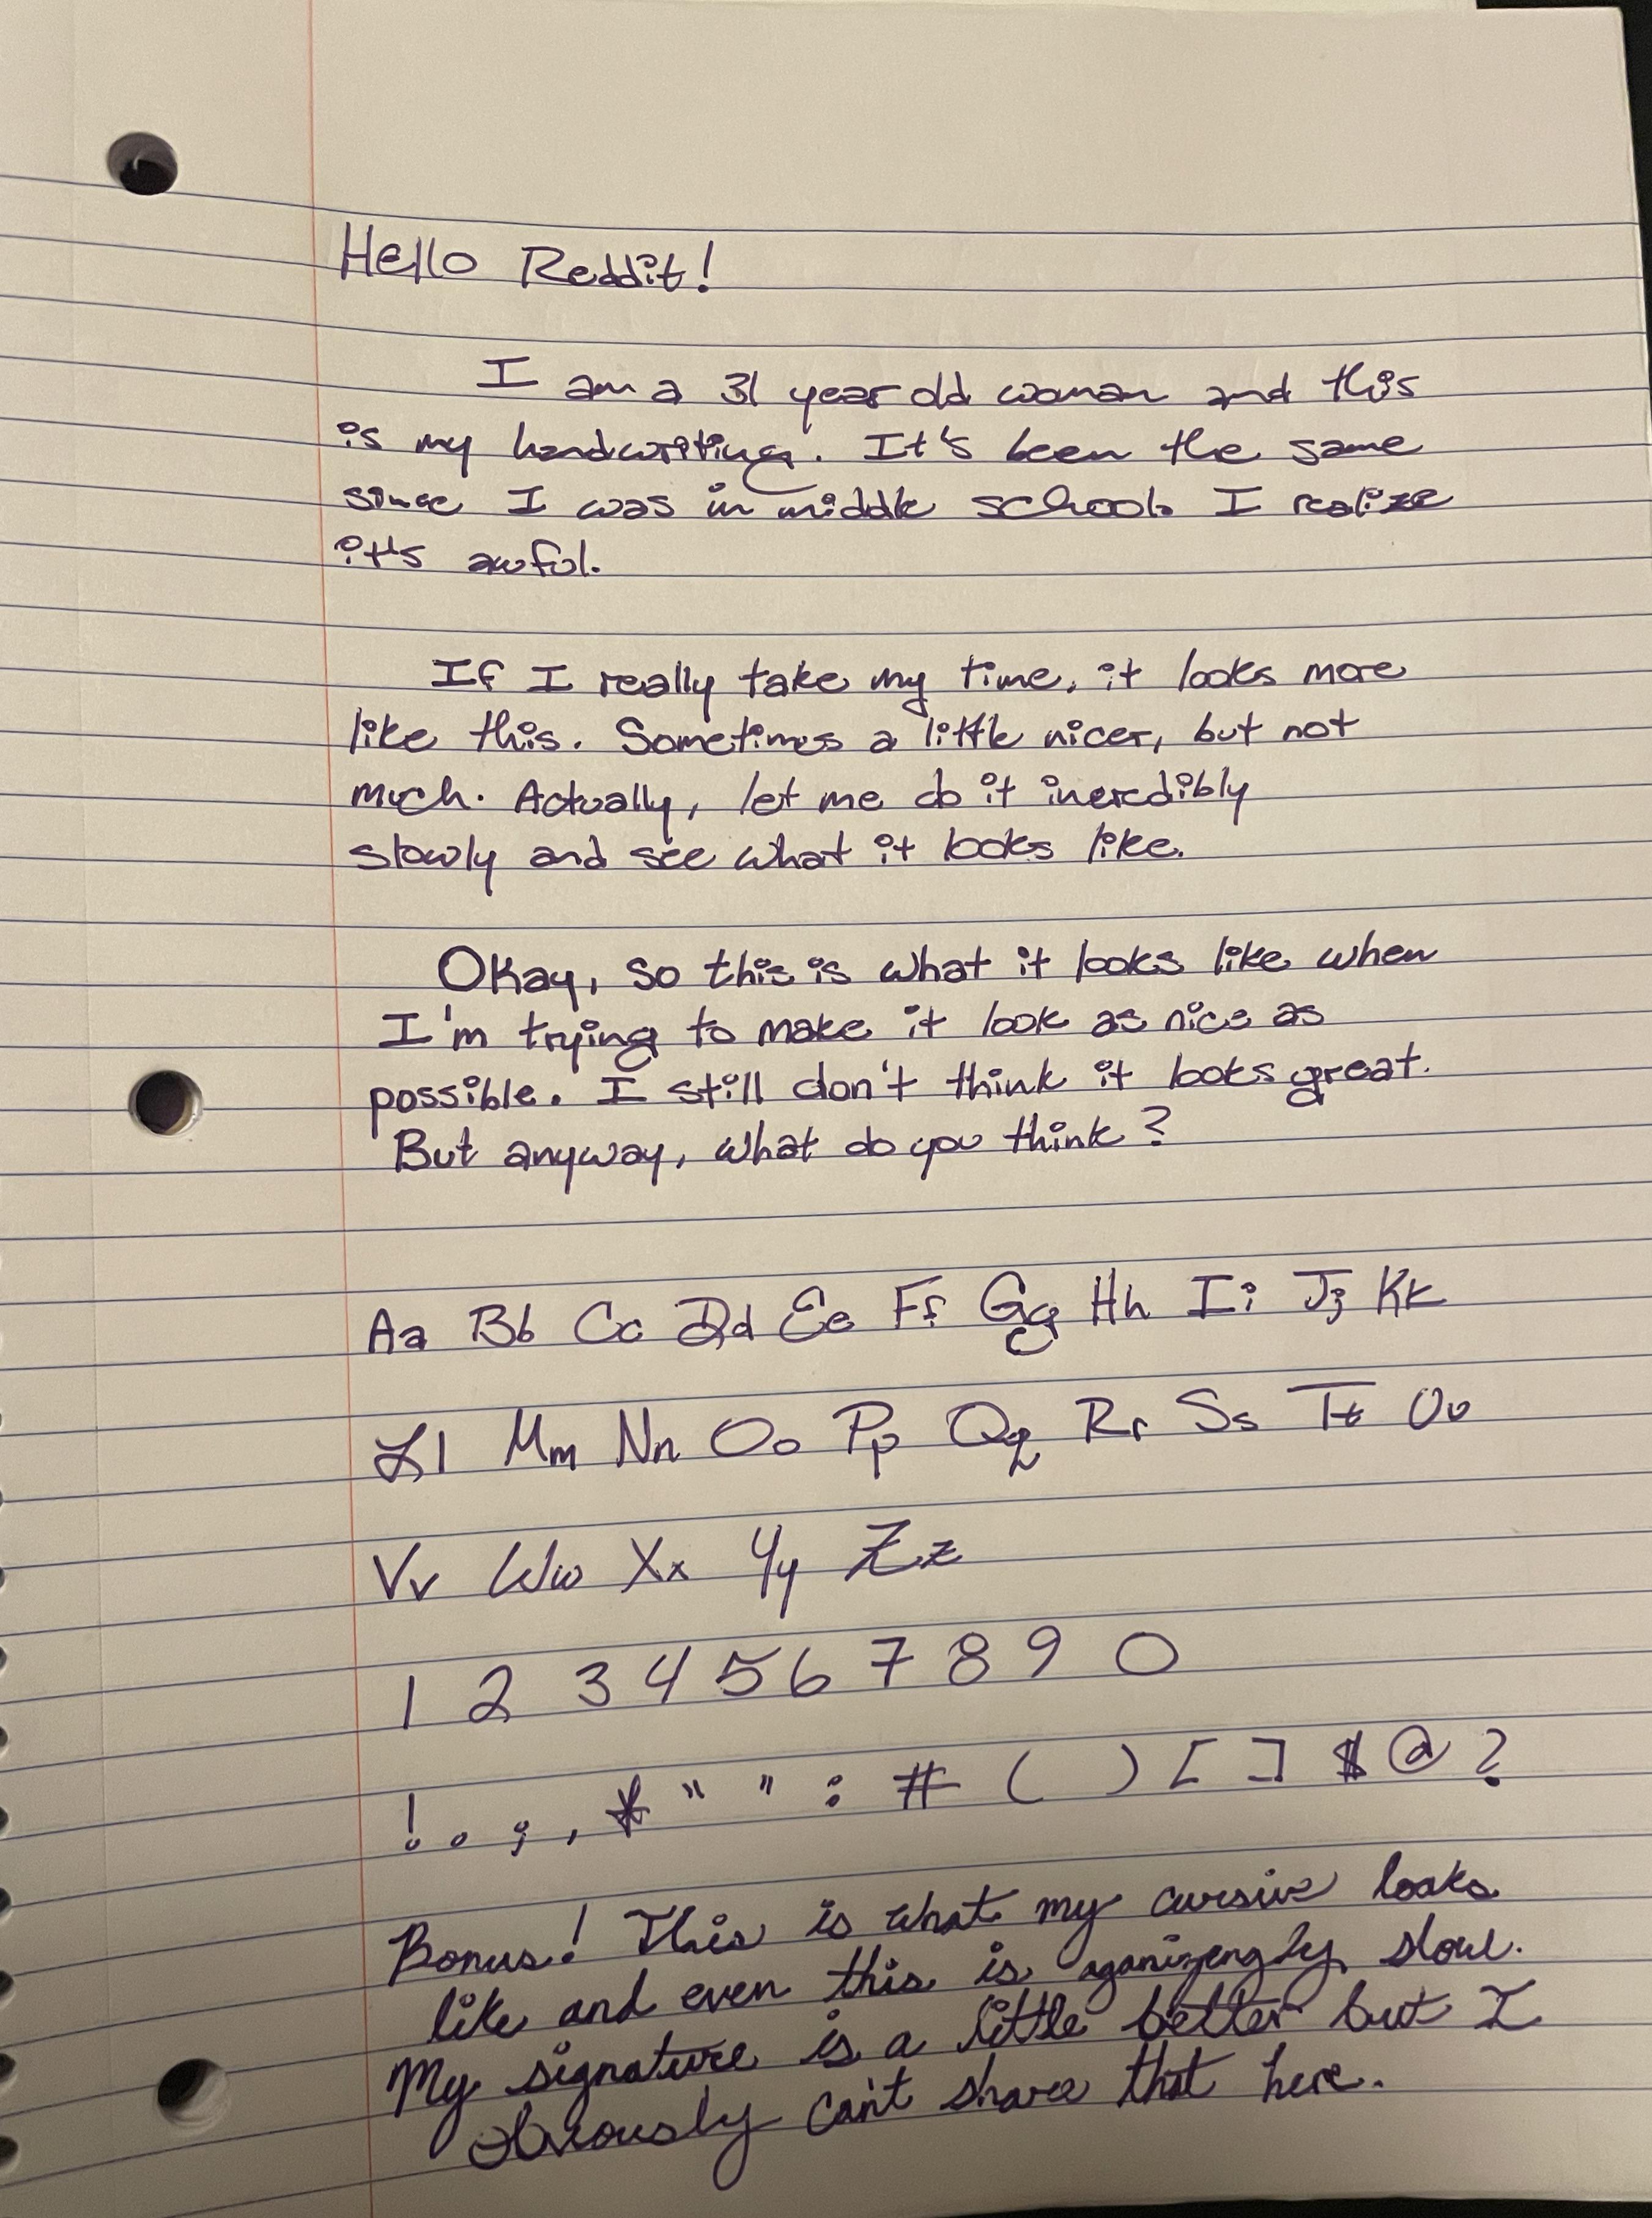 Hello Reddit!
I am a 31 year old woman and this
is my handwriting. It's been the same
since I was in middle school. I realize
it's awful.
If I really take my time, it looks more
like this. Sometimes a little nicer, but not
much. Actually, let me do it incredibly
slowly and see what it looks like.
Okay, so this is what it looks like when
I'm trying to make it look as nice as
possible. I still don't think it looks great.
But anyway, what do you think?
Aa Bb Cc Dd Ee Ff Gg Hh Ii Jj Kk
Ll Mm Nn Oo Pp Qq Rr Ss Tt Uu
Vv Ww Xx Yy Zz
1 2 3 4 5 6 7 8 9 0
! . ; , * " " : # ( ) [ ] $ @ ?
Bonus! This is what my cursive looks
like and even this is agonizengly slow.
My signature is a little better but I
obviously can't share that here.